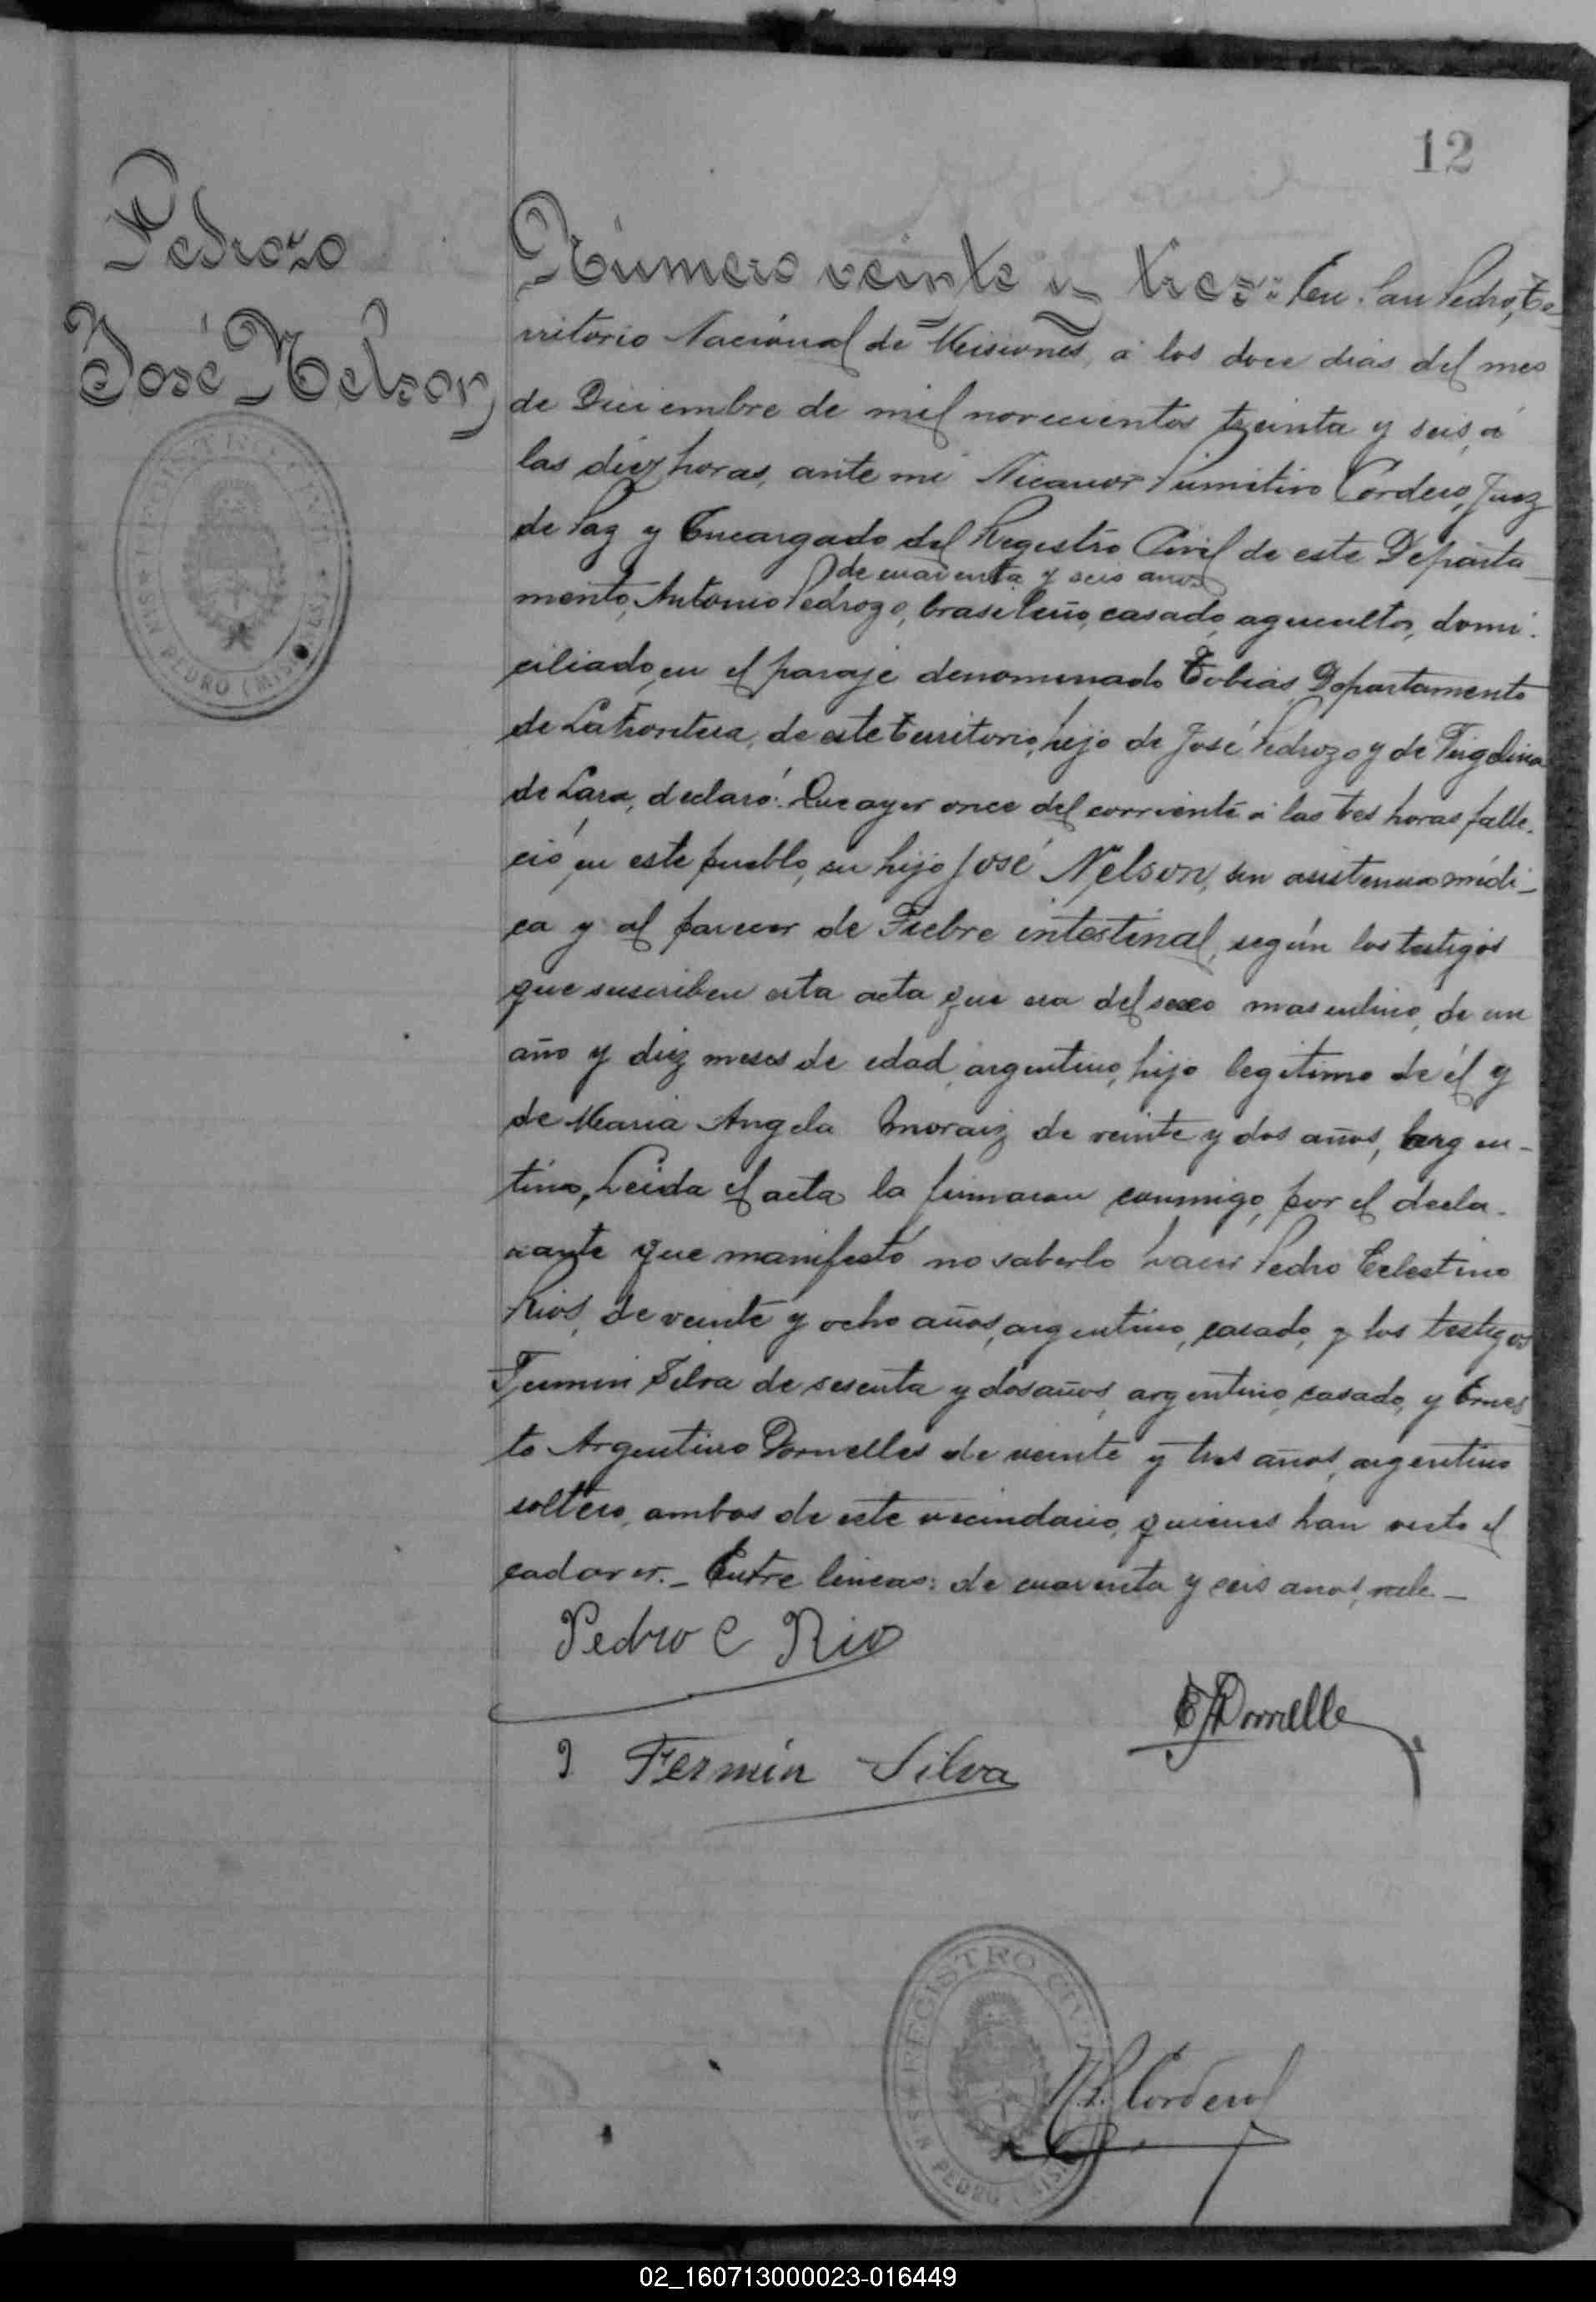 12
Pedrozo
José Nelson
Número veinte y tres: En San Pedro, Te-
rritorio Nacional de Misiones, á los doce dias del mes
de Diciembre de mil novecientos treinta y seis, á
las diez horas, ante mi Nicanor Primitivo Cordero, Juez
de Paz y Encargado del Registro Civil de este Departa-
de cuarenta y seis anos
mento, Antonio Pedrozo, brasileño, casado, agricultor, domi-
ciliado, en el paraje denominado Tobias, Departamento
de Lafrontera, de este territorio, hijo de José Pedrozo y de
de Lara, declaró: Que ayer once del corriente á las tres horas falle-
ció en este pueblo, su hijo José Nelson, sin asistencia médi-
ca y al parecer de Fiebre intestinal, según los testigos
que suscriben esta acta que era del sexo masculino, de un
año y diez meses de edad, argentino, hijo legitimo de él y
de Maria Angela Moraiz de veinte y dos años, argen-
tina, Leida el acta la firmaron conmigo, por el decla-
rante que manifestó no saberlo hacer Pedro Celestino
Rios, de veinte y ocho años, argentino, casado, y los testigos
Fermin Silva de sesenta y dos años, argentino, casado, y Ernes-
to Argentino Dornelles de veinte y tres años, argentino
soltero, ambos de este vecindario, quienes han visto el
cadaver._ Entre lineas: de cuarenta y seis anos, vale_
Pedro C Rio
E A Dornelle
Fermin Silva
REGISTRO CIVIL
SAN PEDRO (MISIONES)
N. P. Cordero
02_160713000023-016449